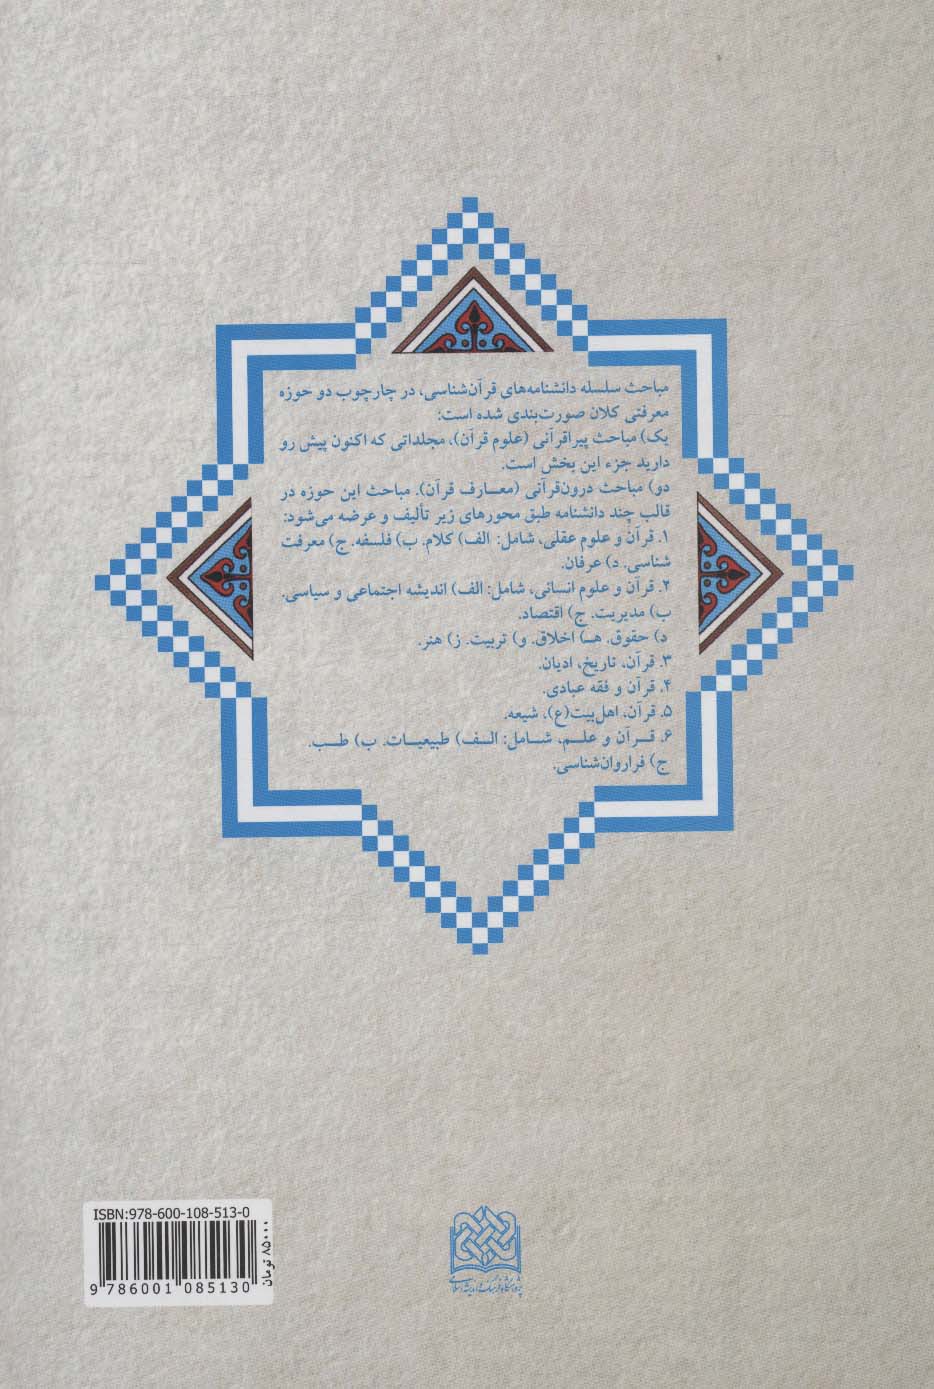 مباحث سلسله دانشنامه‌های قرآن‌شناسی، در چارچوب دو حوزه
معرفتی کلان صورت‌بندی شده است:
یک) مباحث پیراقرآنی (علوم قرآن)، مجلداتی که اکنون پیش رو
دارید جزء این بخش است.
دو) مباحث درون‌قرآنی (معـارف قرآن). مباحث این حوزه در
قالب چند دانشنامه طبق محورهای زیر تألیف و عرضه می‌شود:
۱. قرآن و علوم عقلی، شامل: الف) کلام. ب) فلسفه. ج) معرفت
شناسی. د) عرفان.
۲. قرآن و علوم انسانی، شامل: الف) اندیشه اجتماعی و سیاسی.
ب) مدیریت. ج) اقتصاد.
د) حقوق. هـ) اخلاق. و) تربیت. ز) هنر.
۳. قرآن، تاریخ، ادیان.
۴. قرآن و فقه عبادی.
۵. قرآن، اهل‌بیت(ع)، شیعه.
۶. قـرآن و علـم، شـامل: الـف) طبیعیـات. ب) طـب.
ج) فراروان‌شناسی.
ISBN:978-600-108-513-0
9 786001 085130
۸۵۰۰۰ تومان
پژوهشگاه فرهنگ و اندیشه اسلامی